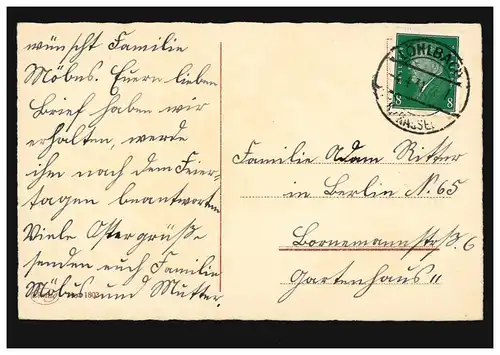 wünscht Familie
Möbus. Euern lieben
Brief haben wir
erhalten, werde
ihn nach dem Feier-
tagen beantworten
Viele Ostergrüße
senden euch Familie
Möbus und Mutter.
1803
OHLBACH
KASSEL
8 8
Familie Adam Ritter
in Berlin N. 65
Bornemannstrß. 6
Gartenhaus II